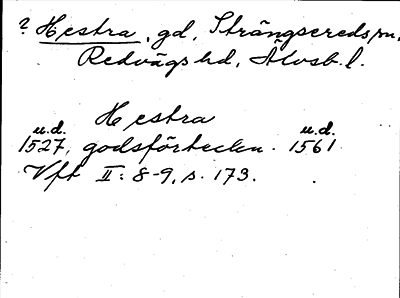 ? Hestra, gd, Strängsereds sn,
Redvägs hd, Älvsb. l.
Hestra
u.d. u.d.
1527, godsförteckn. 1561
Vft II: 8-9, s. 173.